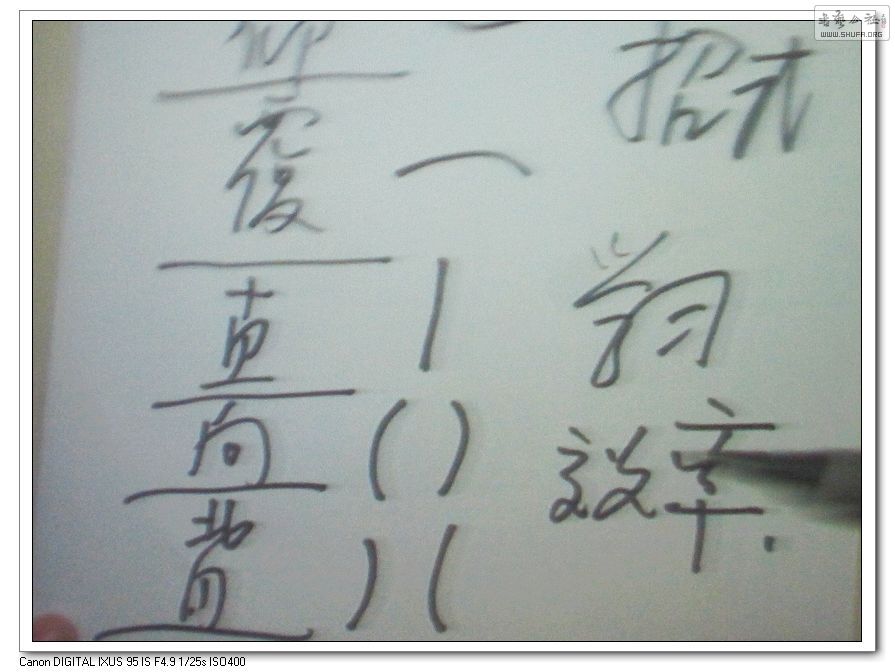 仰
覆
直
向
背
招式
学习
效率.
书艺公社
WWW.SHUFA.ORG
Canon DIGITAL IXUS 95 IS F4.9 1/25s ISO400